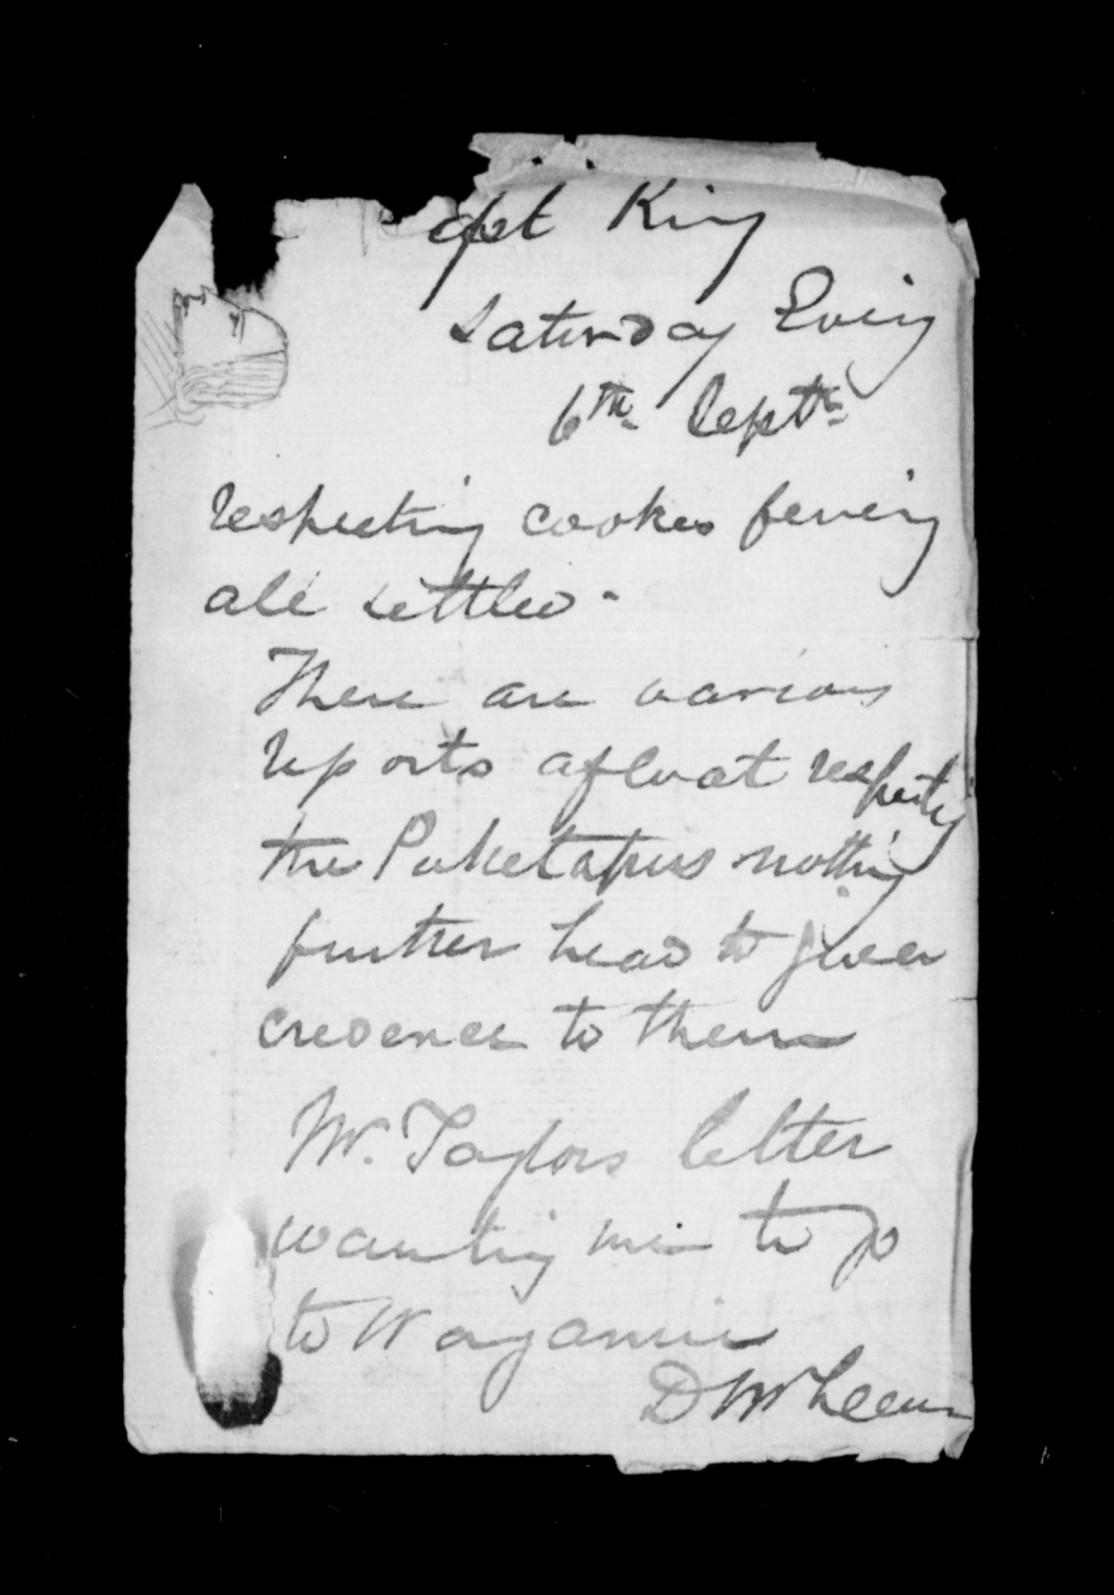 Capt King
Saturday Eveing
6th Septr
respecting Cookes fencing
all settled -
There are various
reports afloat respecting
the Puketapus nothing
further head to given
credence to them
Mr. Taylors letter
wanting me to go
to Waganui
D McLean